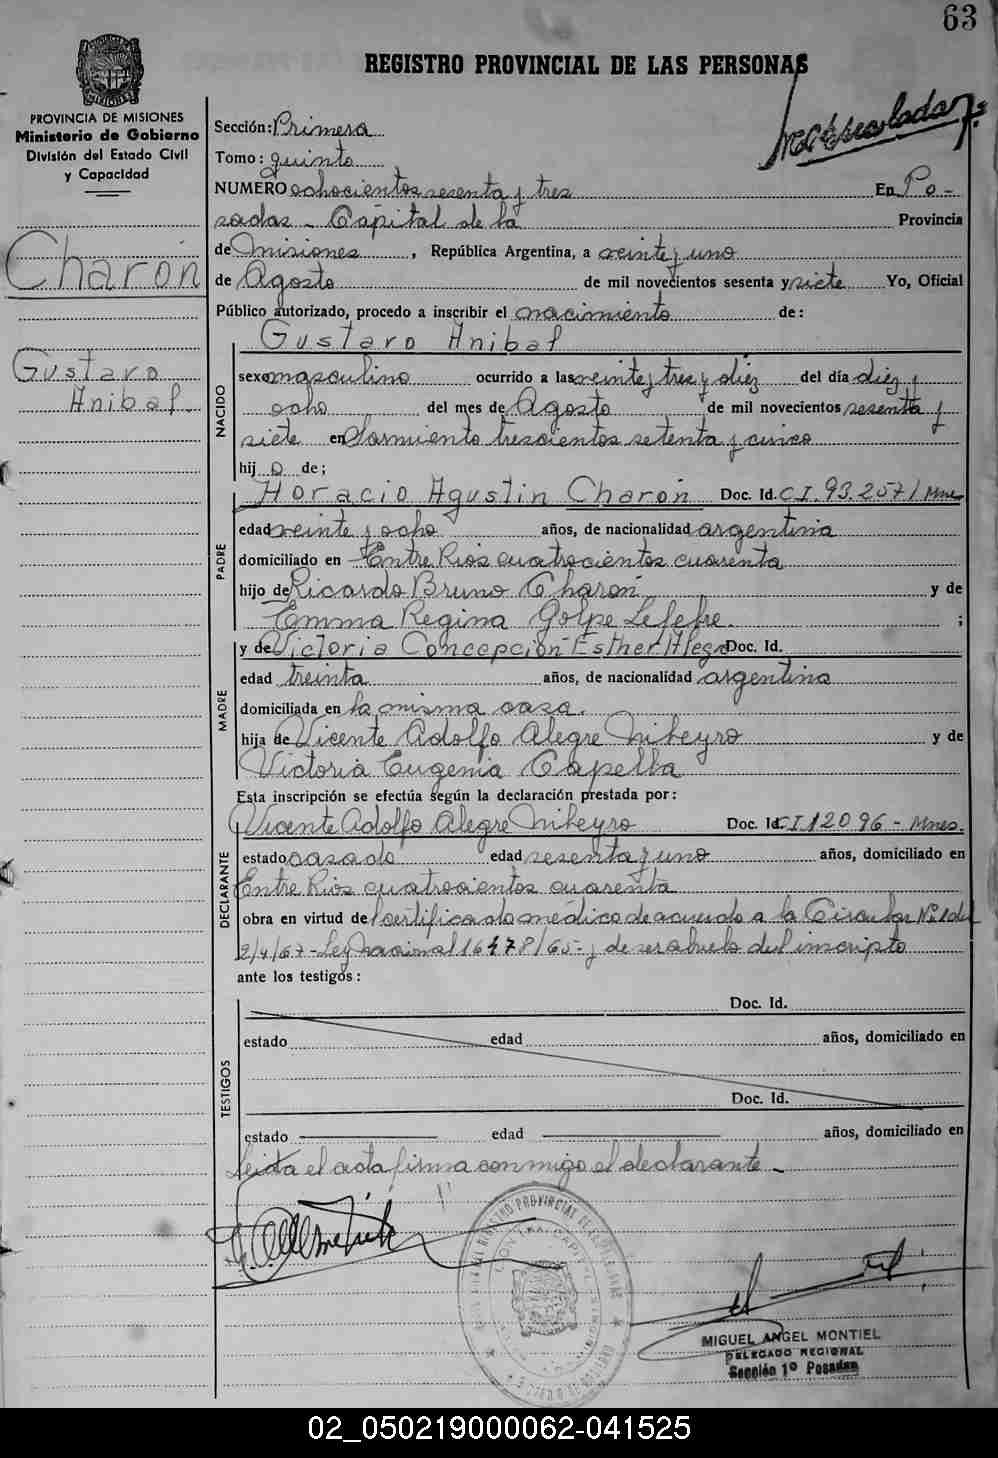 63
REGISTRO PROVINCIAL DE LAS PERSONAS
PROVINCIA DE MISIONES
Ministerio de Gobierno
División del Estado Civil
y Capacidad
Charón
Gustavo
Anibal
Sección: Primera
Tomo: quinto
NUMERO ochocientos sesenta y tres En Po-
sadas - Capital de la Provincia
de Misiones, República Argentina, a veinte y uno
de Agosto de mil novecientos sesenta y siete Yo, Oficial
Público autorizado, procedo a inscribir el nacimiento de:
Gustavo Anibal
NACIDO
sexo masculino ocurrido a las veinte y tres y diez del día diez y
ocho del mes de Agosto de mil novecientos sesenta y
siete en Sarmiento trescientos setenta y cinco
hij o de;
PADRE
Horacio Agustin Charón Doc. Id. C.I. 93.257/Mnes
edad veinte y ocho años, de nacionalidad argentina
domiciliado en Entre Rios cuatrocientos cuarenta
hijo de Ricardo Bruno Charon y de
Emma Regina Golpe ;
MADRE
y de Victoria Concepción Esther Alegre Doc. Id.
edad treinta años, de nacionalidad argentina
domiciliada en la misma casa.
hija de Vicente Adolfo Alegre Niheyro y de
Victoria Eugenia Capella
Esta inscripción se efectúa según la declaración prestada por:
DECLARANTE
Vicente Adolfo Alegre Niheyro Doc. Id. C I 12096 - Mnes.
estado casado edad sesenta y uno años, domiciliado en
Entre Rios cuatrocientos cuarenta
obra en virtud de certificado médico de acuerdo a la Circular Nº 1 del
2/4/67 - Ley nacional 16478/65 - y de ser abuelo del inscripto
ante los testigos:
TESTIGOS
Doc. Id.
estado edad años, domiciliado en
Doc. Id.
estado edad años, domiciliado en
Leida el acta firma conmigo el declarante -
MIGUEL ANGEL MONTIEL
DELEGADO REGIONAL
Sección 1º Posadas
02_050219000062-041525